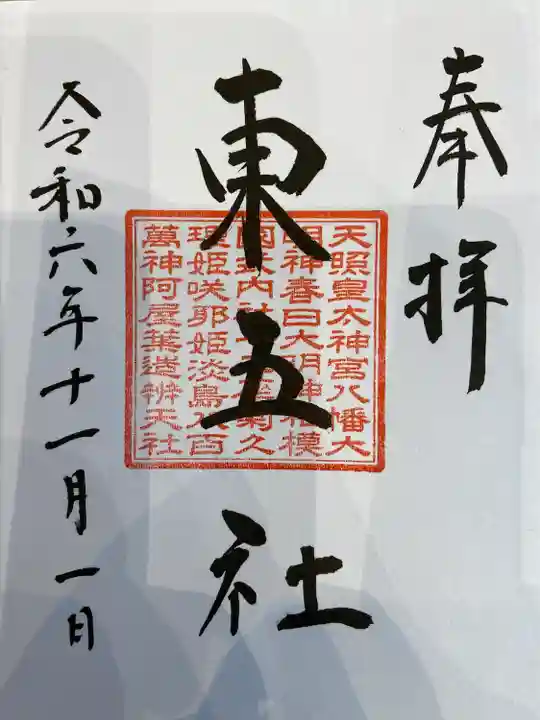 奉拝
東五社
天照皇太神宮八幡大
明神春日大明神相模
国 内社 菊久
理姫咲耶姫淡島八百
萬神阿屋葉造辨天社
令和六年十一月一日